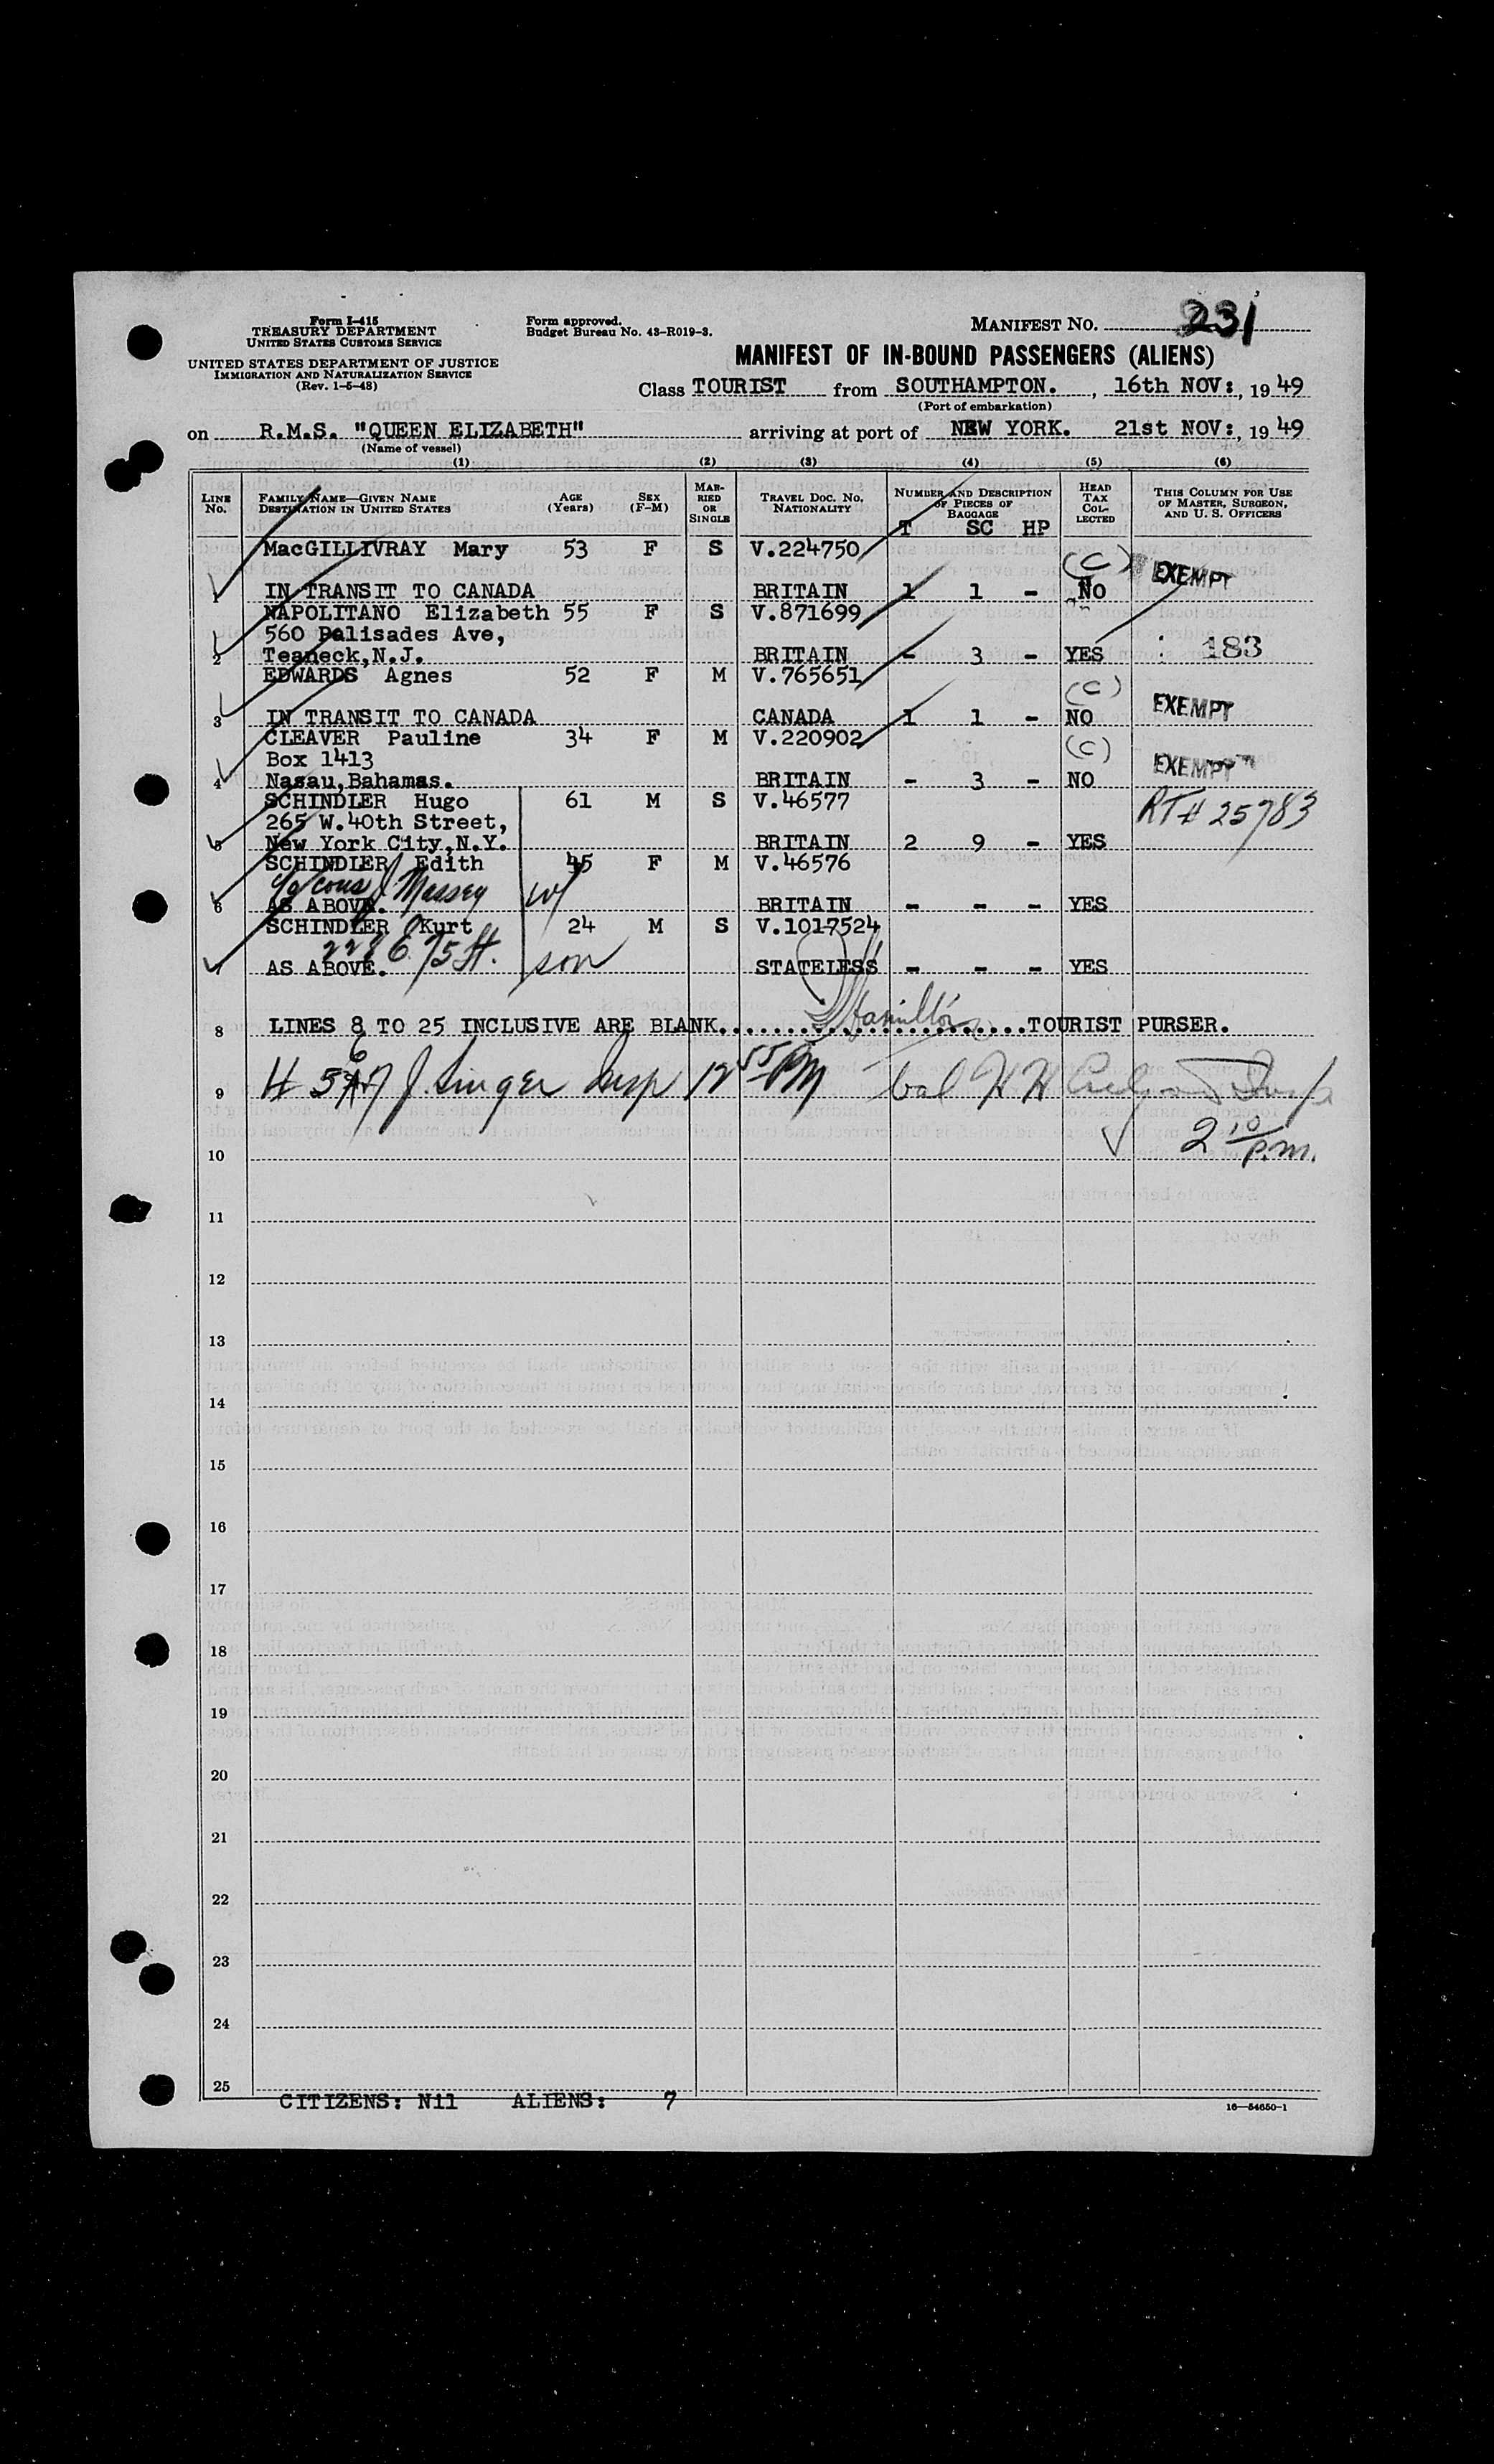 231
Form I-415
TREASURY DEPARTMENT
UNITED STATES CUSTOMS SERVICE
Form approved.
Budget Bureau No. 43-R019-3.
MANIFEST NO.
UNITED STATES DEPARTMENT OF JUSTICE
IMMIGRATION AND NATURALIZATION SERVICE
(Rev. 1-5-48)
MANIFEST OF IN-BOUND PASSENGERS (ALIENS)
Class TOURIST from SOUTHAMPTON. , 16th NOV:, 19 49
(Port of embarkation)
on R.M.S. "QUEEN ELIZABETH" arriving at port of NEW YORK. 21st NOV:, 19 49
(Name of vessel)
(1) (2) (3) (4) (5) (6)
LINE No. FAMILY NAME—GIVEN NAME DESTINATION IN UNITED STATES AGE (Years) SEX (F-M) MARRIED OR SINGLE TRAVEL DOC. NO. NATIONALITY NUMBER AND DESCRIPTION OF PIECES OF BAGGAGE HEAD TAX COLLECTED THIS COLUMN FOR USE OF MASTER, SURGEON, AND U. S. OFFICERS
T SC HP
MacGILLIVRAY Mary 53 F S V.224750 (C) EXEMPT
1 IN TRANSIT TO CANADA BRITAIN 1 1 - NO
NAPOLITANO Elizabeth 55 F S V.871699
560 Palisades Ave,
2 Teaneck,N.J. BRITAIN - 3 - YES 183
EDWARDS Agnes 52 F M V.765651 (C) EXEMPT
3 IN TRANSIT TO CANADA CANADA 1 1 - NO
CLEAVER Pauline 34 F M V.220902 (C)
Box 1413 EXEMPT
4 Nasau,Bahamas. BRITAIN - 3 - NO
SCHINDLER Hugo 61 M S V.46577 RT# 25783
265 W.40th Street,
5 New York City,N.Y. BRITAIN 2 9 - YES
SCHINDLER Edith 45 F M V.46576
c/o cous J. Massey w/
6 AS ABOVE. BRITAIN - - - YES
SCHINDLER Kurt 24 M S V.1017524
228 E. 75 St. son
7 AS ABOVE. STATELESS - - - YES
8 LINES 8 TO 25 INCLUSIVE ARE BLANK. Hamilton TOURIST PURSER.
9 # 5 6 7 J. Singer Insp 12 55 PM bal H H
10 2 10 p.m.
11
12
13
14
15
16
17
18
19
20
21
22
23
24
25
CITIZENS: Nil ALIENS: 7
16—54650-1